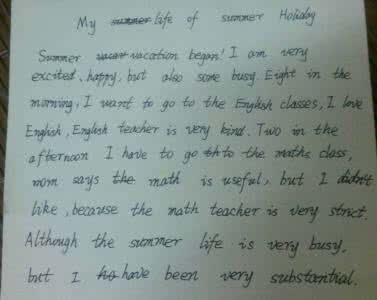 My summer life of summer Holiday
Summer vacation began! I am very
excited, happy, but also some busy. Eight in the
morning, I want to go to the English classes, I love
English, English teacher is very kind. Two in the
afternoon I have to go to the maths class,
mom says the math is useful, but I didn't
like, because the math teacher is very strict.
Although the summer life is very busy,
but I have been very substantial.